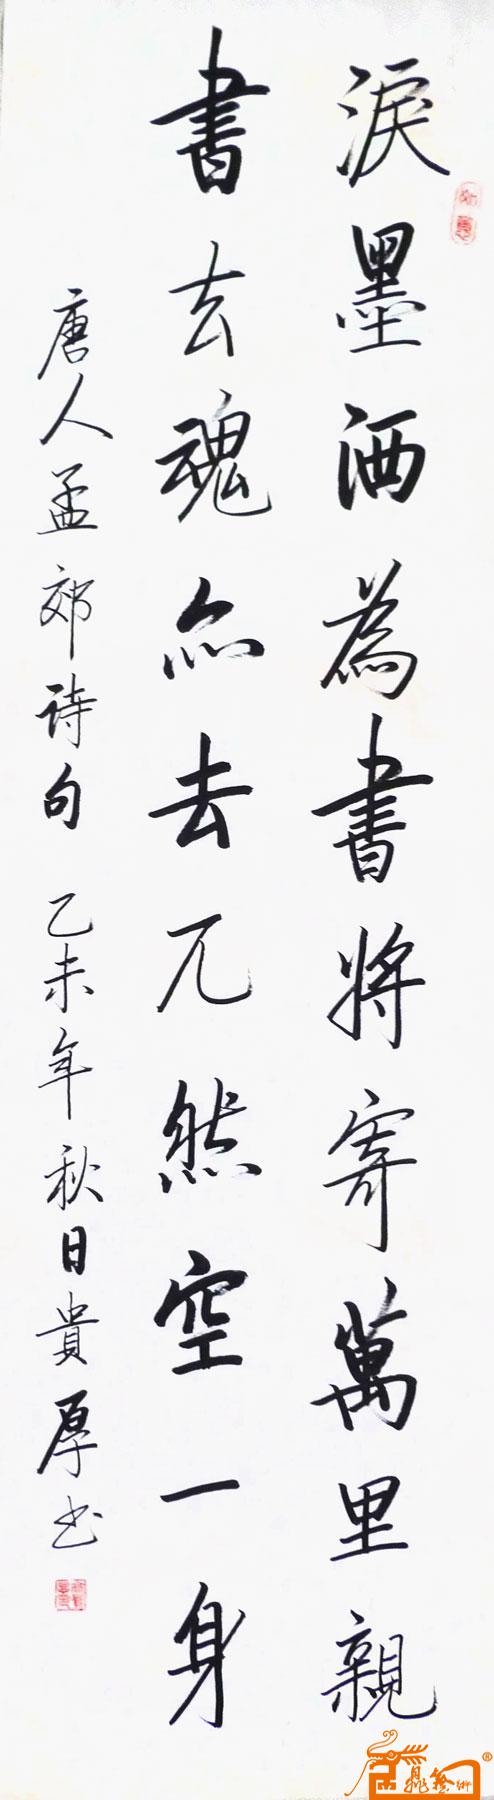 淚墨洒為書將寄萬里親
書去魂亦去兀然空一身
唐人孟郊诗句 乙未年秋日貴厚书